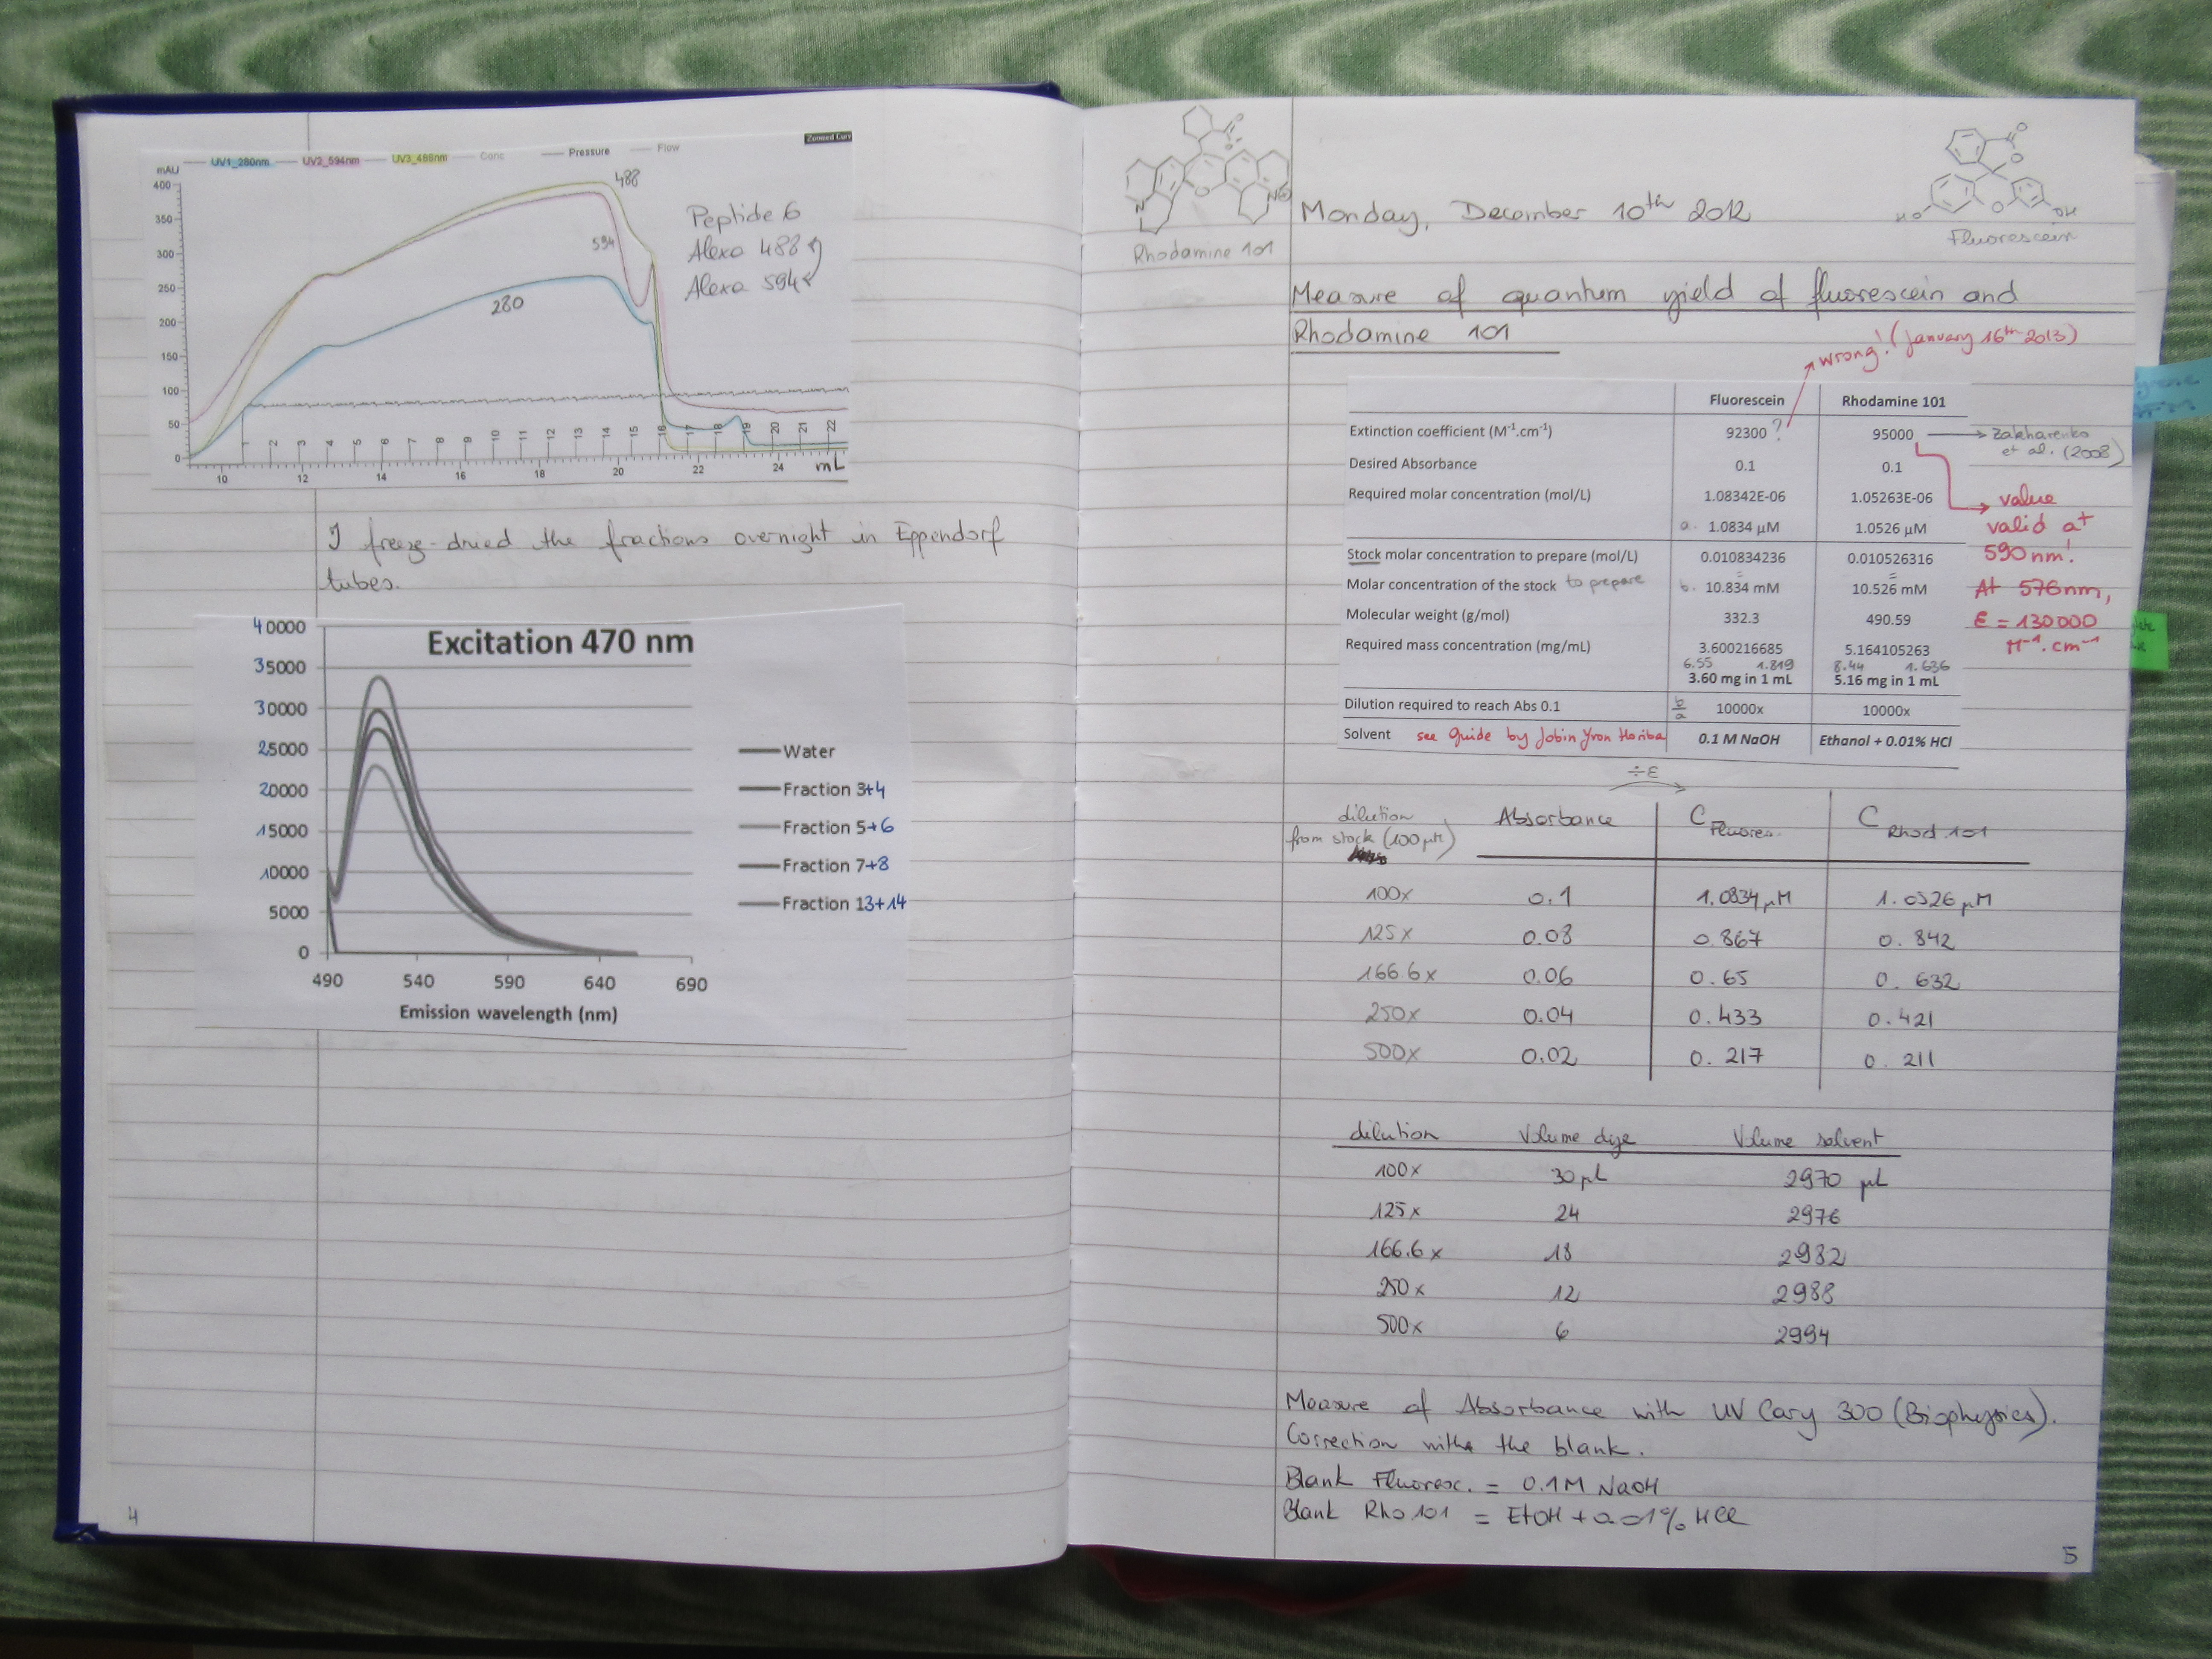 Zoomed Curv
UV1_280nm UV2_594nm UV3_488nm Conc Pressure Flow
mAU
400
350
300
250
200
150
100
50
0
488
594
280
Peptide 6
Alexa 488
Alexa 594
1 2 3 4 5 6 7 8 9 10 11 12 13 14 15 16 17 18 19 20 21 22
10 12 14 16 18 20 22 24 mL
I freeze-dried the fractions overnight in Eppendorf
tubes.
Excitation 470 nm
40000
35000
30000
25000
20000
15000
10000
5000
0
490 540 590 640 690
Emission wavelength (nm)
Water
Fraction 3+4
Fraction 5+6
Fraction 7+8
Fraction 13+14
4
N N
O
Rhodamine 101
O
O
HO O OH
Fluorescein
Monday, December 10th 2012
Measure of quantum yield of fluorescein and
Rhodamine 101
wrong! (January 16th 2013)
Fluorescein Rhodamine 101
Extinction coefficient (M-1.cm-1) 92300 ? 95000 Zakharenko
et al. (2008)
Desired Absorbance 0.1 0.1
Required molar concentration (mol/L) 1.08342E-06 1.05263E-06
a. 1.0834 µM 1.0526 µM
Stock molar concentration to prepare (mol/L) 0.010834236 0.010526316
Molar concentration of the stock to prepare b. 10.834 mM 10.526 mM
Molecular weight (g/mol) 332.3 490.59
Required mass concentration (mg/mL) 3.600216685 5.164105263
6.55 1.819 8.44 1.636
3.60 mg in 1 mL 5.16 mg in 1 mL
Dilution required to reach Abs 0.1 b/a 10000x 10000x
Solvent see Guide by Jobin Yvon Horiba 0.1 M NaOH Ethanol + 0.01% HCl
value
valid at
590nm!
At 576nm,
ε = 130000
M-1.cm-1
÷ε
dilution Absorbance C Fluoresc. C Rhod 101
from stock (100 µM)
100x 0.1 1.0834 µM 1.0526 µM
125x 0.08 0.867 0.842
166.6x 0.06 0.65 0.632
250x 0.04 0.433 0.421
500x 0.02 0.217 0.211
dilution Volume dye Volume solvent
100x 30 µL 2970 µL
125x 24 2976
166.6x 18 2982
250x 12 2988
500x 6 2994
Measure of Absorbance with UV Cary 300 (Biophysics).
Correction with the blank.
Blank Fluoresc. = 0.1M NaOH
Blank Rho 101 = EtOH + 0.01% HCl
5